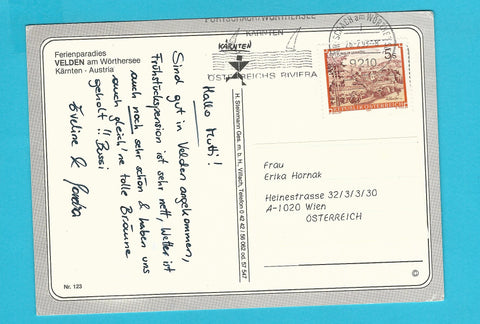 Ferienparadies
VELDEN am Wörthersee
Kärnten · Austria
Hallo Mutti!
Sind gut in Velden angekommen,
Frühstückspension ist sehr nett, Wetter ist
auch noch sehr schön & haben uns
auch gleich 'ne tolle Bräune
geholt!! Bussi
Eveline &
Nr. 123
H. Steinmann Ges. m. b. H., Villach, Telefon 0 42 42 / 56 062 od. 57 547
PÖRTSCHACH/WÖRTHERSEE
KÄRNTEN
KÄRNTEN
ÖSTERREICHS RIVIERA
9210
5 S
REPUBLIK ÖSTERREICH
Frau
Erika Hornak
Heinestrasse 32/3/3/30
A-1020 Wien
ÖSTERREICH
©